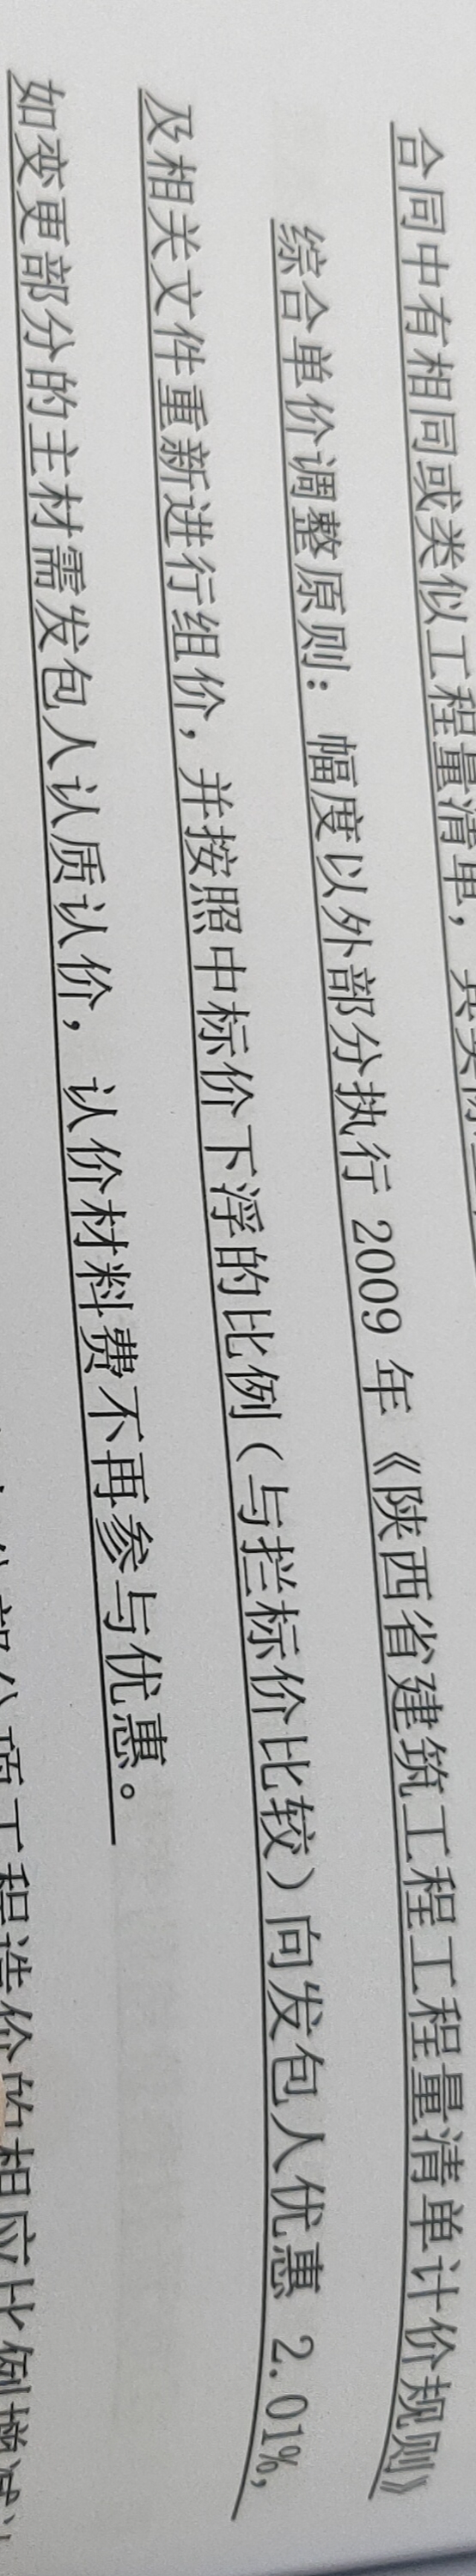 合同中有相同或类似工程量清单，其实际
综合单价调整原则：幅度以外部分执行 2009 年《陕西省建筑工程工程量清单计价规则》
及相关文件重新进行组价，并按照中标价下浮的比例（与拦标价比较）向发包人优惠 2.01%，
如变更部分的主材需发包人认质认价，认价材料费不再参与优惠。
分部分项工程造价的相应比例增减